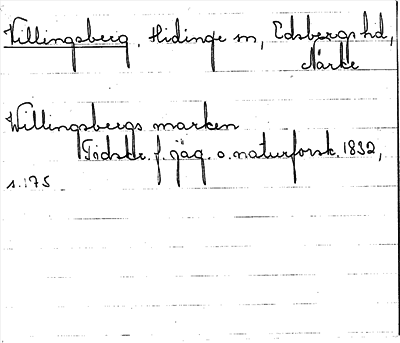 Villingsberg. Hidinge sn, Edsbergs hd,
Närke
Willingsbergs marken
Tidskr. f. jäg. o. naturforsk. 1832,
s. 175